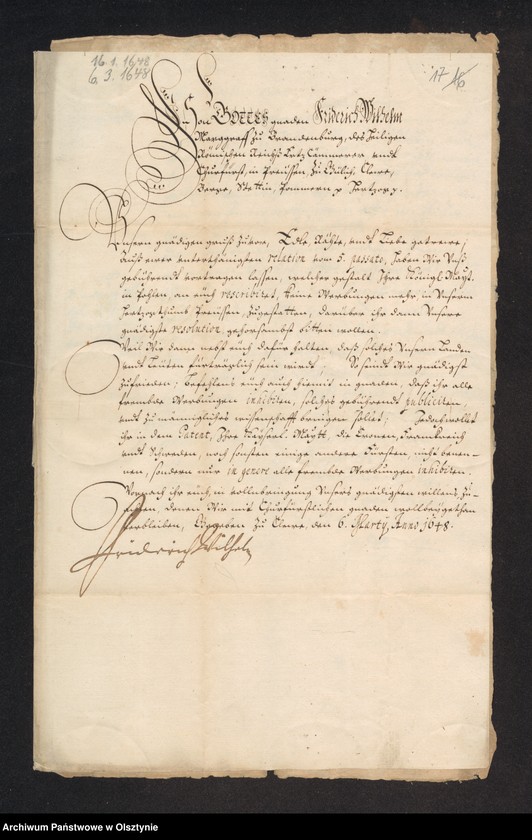 16.1.1648
6.3.1648
17 16
Von GOTTES gnaden Friderich Wilhelm
Marggraff zu Brandenburg, des Heiligen
Römischen Reichs Ertz Cämmerer undt
Churfürst, in Preussen, zu Gülich, Cleve,
Berge, Stettin, Pommern p Hertzog p.
Unsern gnädigen gruß zuvor, Edle, Räthe, undt Liebe getrewe;
Auß ewer unterthänigsten relation vom 5. passato, haben Wir Unß
gebührendt vortragen lassen, welcher gestalt Ihre Königl. Mayt.
in Pohlen, an euch rescribiret, keine Werbungen mehr in Unserm
Hertzogthumb Preussen, zugestatten, darüber ihr dann Unsere
gnädigste resolution, gehorsambst bitten wollen.
Weil Wir dann nebst euch dafür halten, daß solches Unsern Landen
undt Leuten fürträglich sein wirdt; So seindt Wir gnädigst
zufrieden; befehlens euch auch hiemit in gnaden, daß ihr alle
frembde Werbungen inhibiren, solches gebührendt publiciren,
undt zu männigliches wissenschafft bringen sollet; Jedoch wollet
ihr in dem Patent, Ihre Kayserl. Maytt. die Cronen, Franckreich
undt Schweden, noch sonsten einige andere Fürsten, nicht benen-
nen, sondern nur in genere alle frembde Werbungen, inhibiren.
Wornach ihr euch, in vollnbringung Unsers gnädigsten willens, zu-
achten, Denen Wir mit Churfürstlichen gnaden wollbeygethan
verbleiben, Geggeben zu Cleve, den 6. Marty, Anno 1648.
Friderich Wilhelm
Archiwum Państwowe w Olsztynie